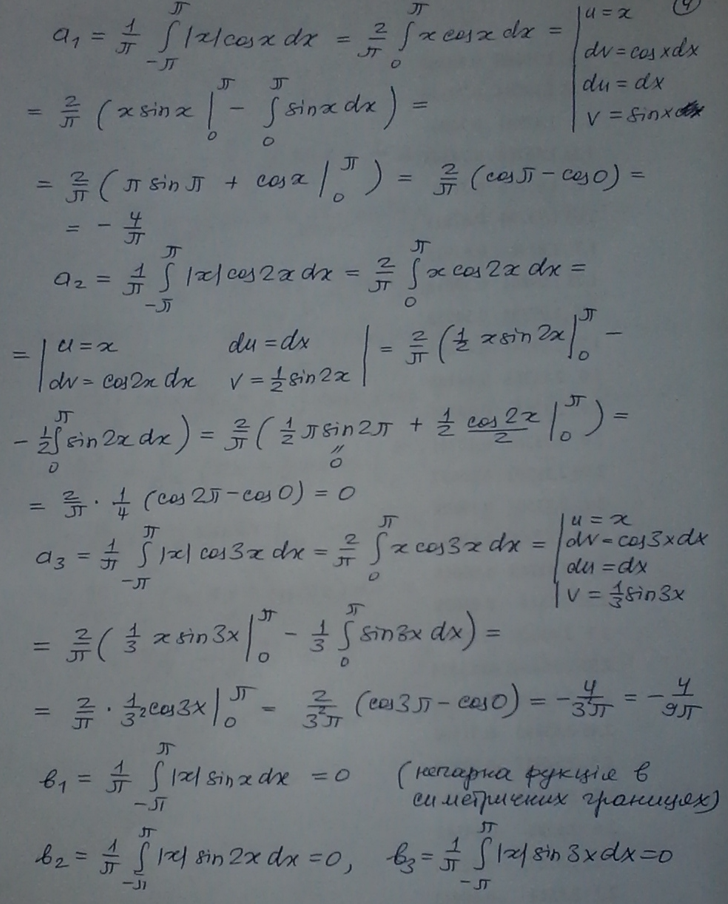 4
a₁ = 1/π ∫_{-π}^{π} |x| cos x dx = 2/π ∫_0^π x cos x dx = | u = x
dv = cos x dx
du = dx
v = sin x
= 2/π (x sin x |_0^π - ∫_0^π sin x dx) =
= 2/π (π sin π + cos x |_0^π) = 2/π (cos π - cos 0) =
= - 4/π
a₂ = 1/π ∫_{-π}^{π} |x| cos 2x dx = 2/π ∫_0^π x cos 2x dx =
= | u = x du = dx
dv = cos 2x dx v = 1/2 sin 2x | = 2/π (1/2 x sin 2x |_0^π -
- 1/2 ∫_0^π sin 2x dx) = 2/π (1/2 π sin 2π + 1/2 cos 2x / 2 |_0^π) =
= 0
= 2/π · 1/4 (cos 2π - cos 0) = 0
a₃ = 1/π ∫_{-π}^{π} |x| cos 3x dx = 2/π ∫_0^π x cos 3x dx = | u = x
dv = cos 3x dx
du = dx
v = 1/3 sin 3x
= 2/π (1/3 x sin 3x |_0^π - 1/3 ∫_0^π sin 3x dx) =
= 2/π · 1/3² cos 3x |_0^π = 2/3²π (cos 3π - cos 0) = - 4/3²π = - 4/9π
в₁ = 1/π ∫_{-π}^{π} |x| sin x dx = 0 (непарна фукція в
симетричних границях)
в₂ = 1/π ∫_{-π}^{π} |x| sin 2x dx = 0, в₃ = 1/π ∫_{-π}^{π} |x| sin 3x dx = 0